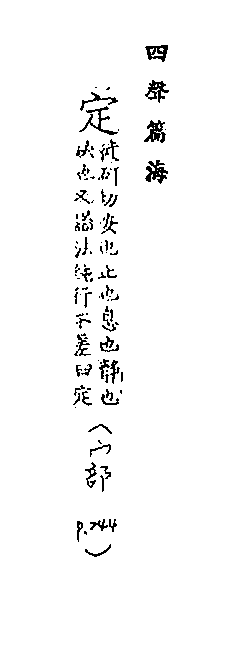 四聲篇海
定
徒刑切安也止也息也靜也
決也又諡法純行不差曰定
(宀部 p.244)